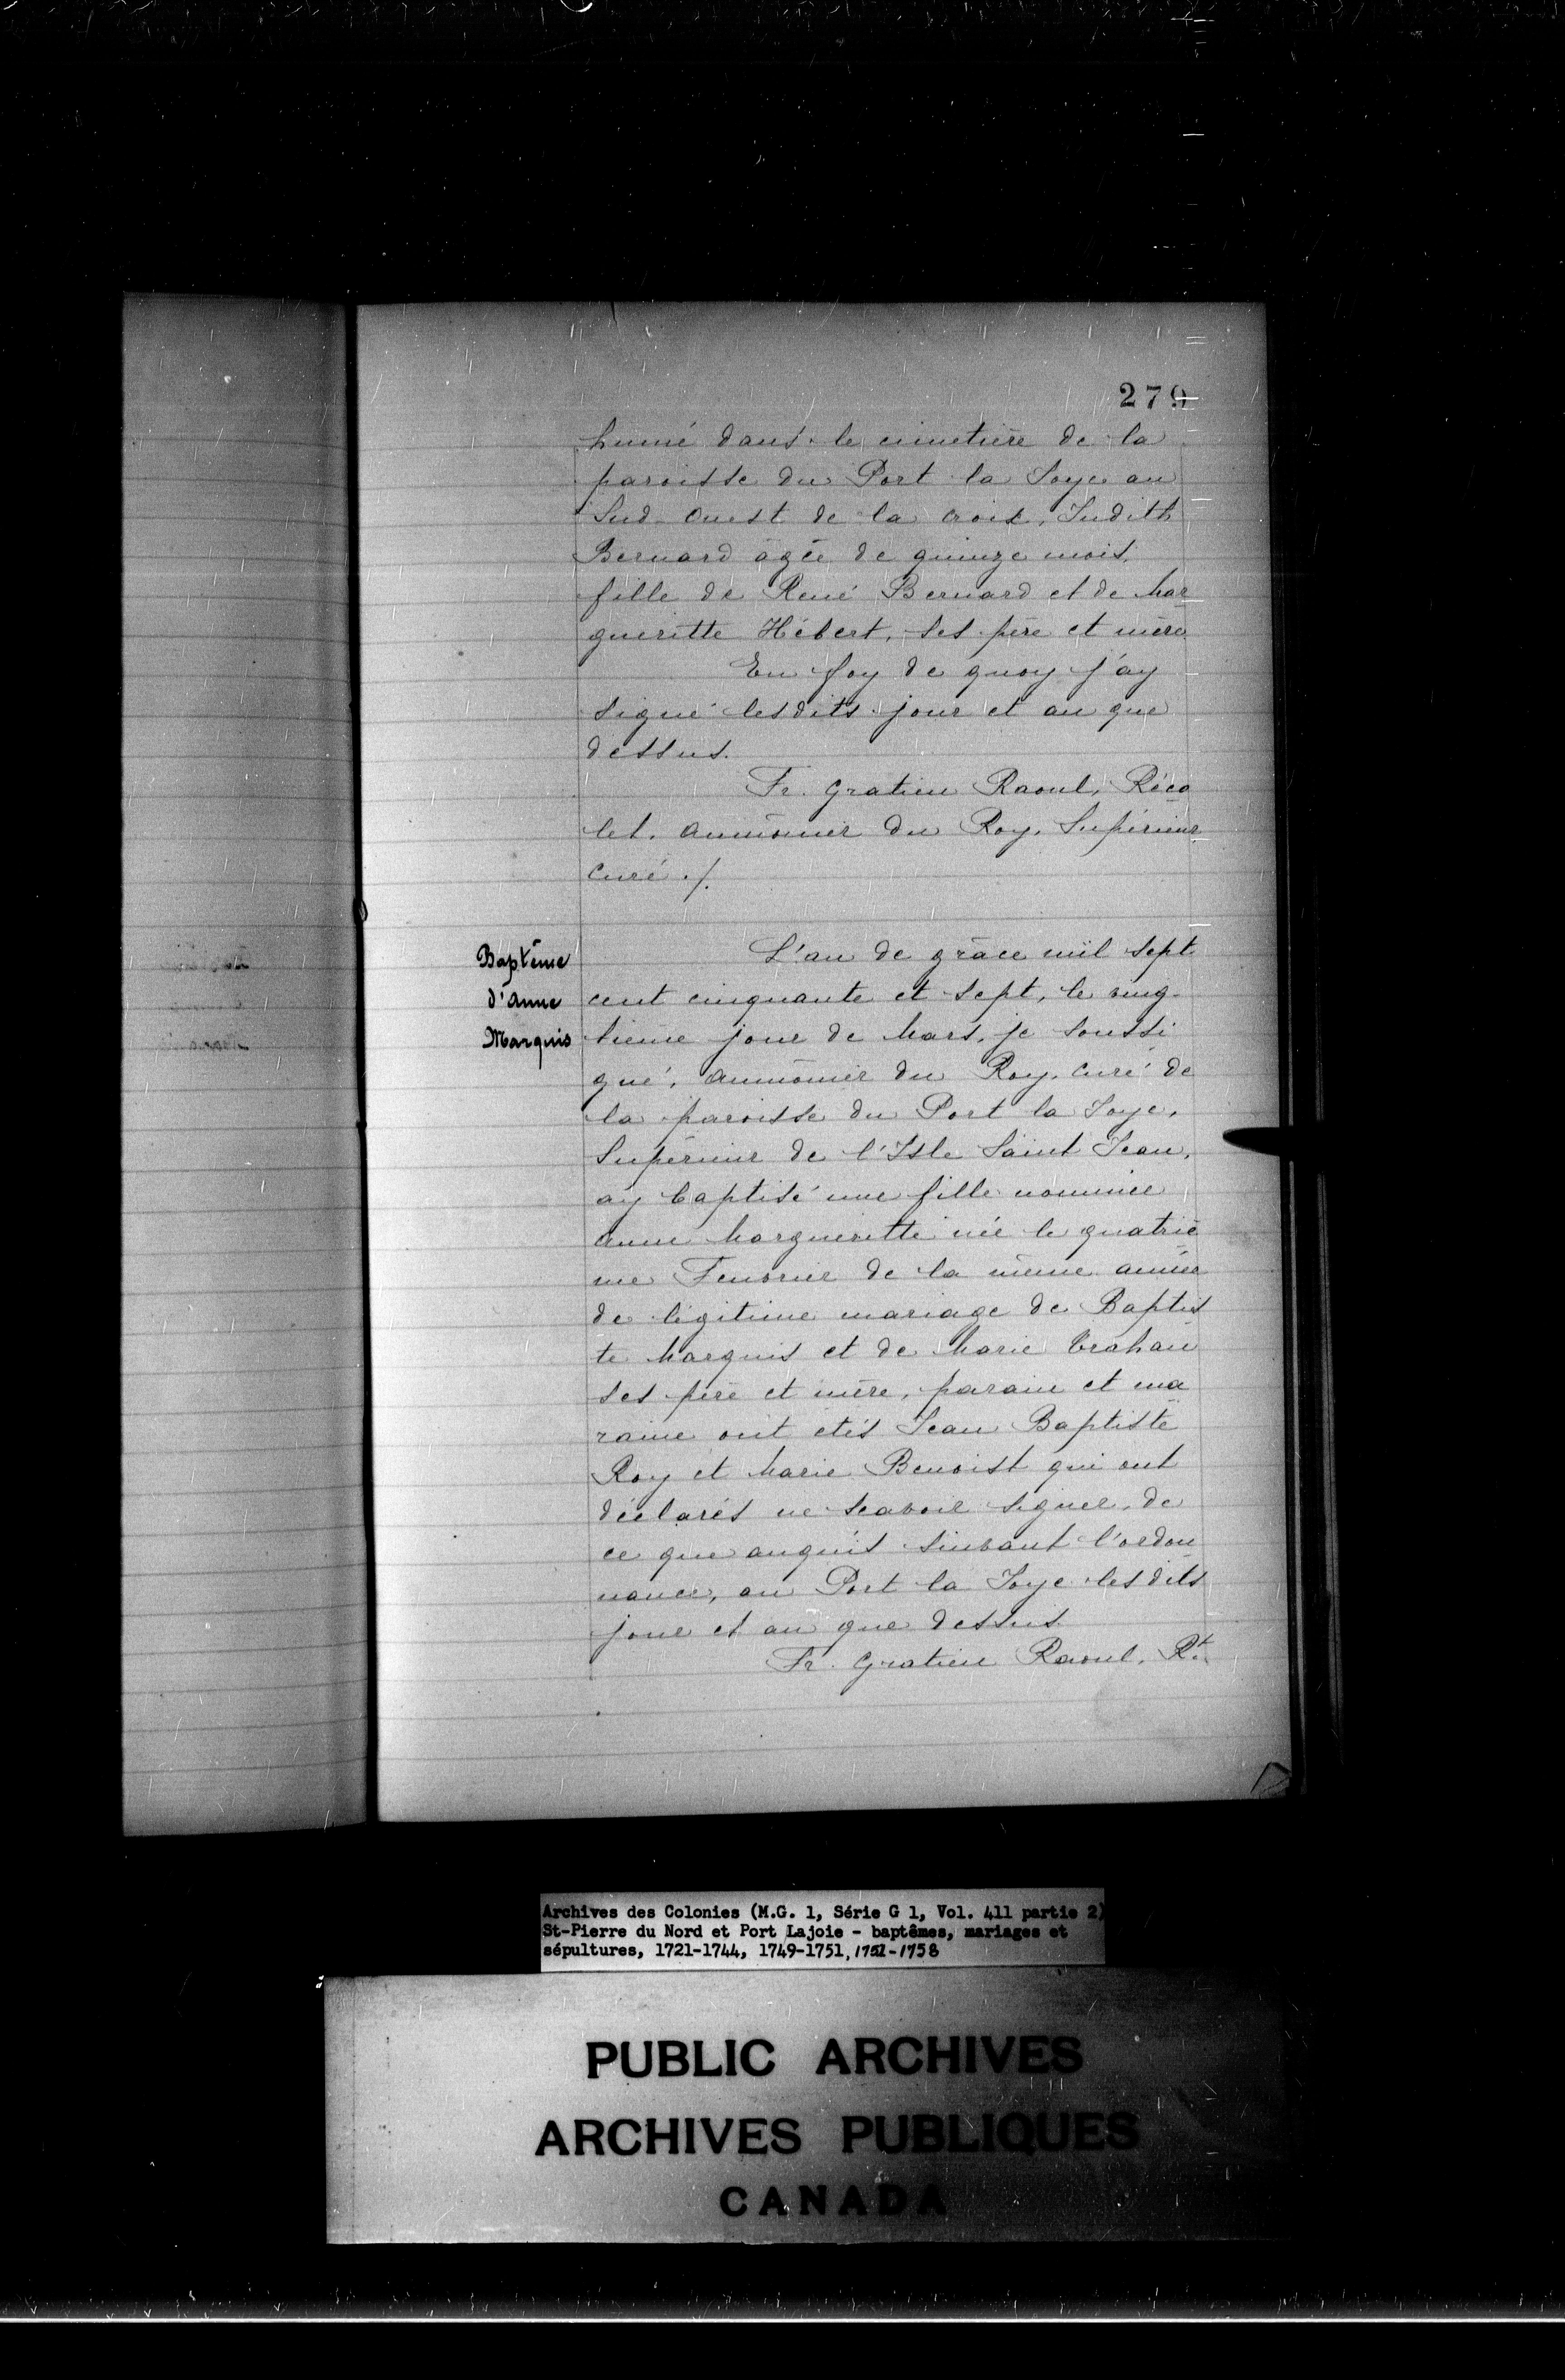 279
humé dans le cimetière de la
paroisse du Port la Joye au
Sud-Ouest de la croix, Judith
Bernard âgée de quinze mois,
fille de René Bernard et de Mar
gueritte Hébert, ses père et mère
En foy de quoy j'ay
signé lesdits jour et an que
dessus.
Fr. Gratien Raoul, Réco
let, aumônier du Roy, Supérieur
curé ./.
Baptême
d'Anne
Marquis
L'an de grâce mil sept
cent cinquante et sept, le ving-
tième jour de Mars, je soussi
gné, aumônier du Roy, curé de
la paroisse du Port la Joye,
Supérieur de l'Isle Saint Jean,
ay baptisé une fille nommée
Anne Margueritte née le quatriè
me Feuvrier de la même année
de légitime mariage de Baptis
te Marquis et de Marie Trahan
ses père et mère, parain et ma
raine ont étés Jean Baptiste
Roy et Marie Benoist qui ont
déclarés ne scavoir signer, de
ce que anquis suivant l'ordon
nance, au Port la Joye lesdits
jour et an que dessus
Fr. Gratien Raoul, Rt.
Archives des Colonies (M.G. 1, Série G 1, Vol. 411 partie 2)
St-Pierre du Nord et Port Lajoie - baptêmes, mariages et
sépultures, 1721-1744, 1749-1751, 1752-1758
PUBLIC ARCHIVES
ARCHIVES PUBLIQUES
CANADA